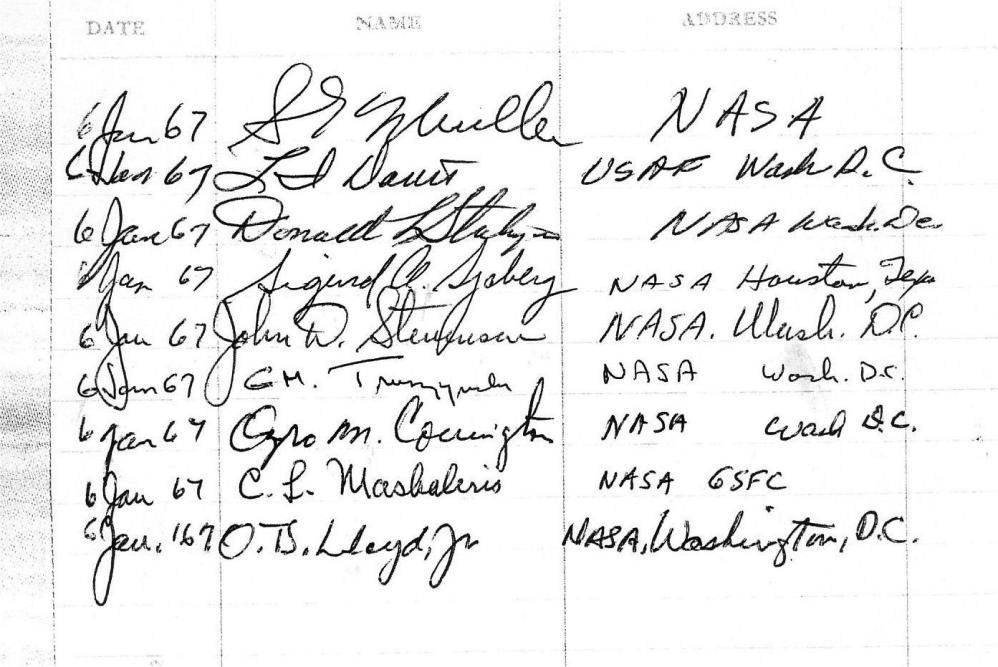 DATE NAME ADDRESS
6 Jan 67 Mueller NASA
6 Jan 67 L I Davis USAF Wash D.C.
6 Jan 67 Donald NASA Wash. DC
Jan 67 Sigurd A. Sjoberg NASA Houston, Texas
6 Jan 67 John D. Stevenson NASA. Wash. D.C.
6 Jan 67 NASA Wash. D.C.
6 Jan 67 Ozro M. Covington NASA Wash D.C.
6 Jan 67 C. L. Maskaleris NASA GSFC
6 Jan. '67 O. B. Lloyd, Jr NASA, Washington, D.C.